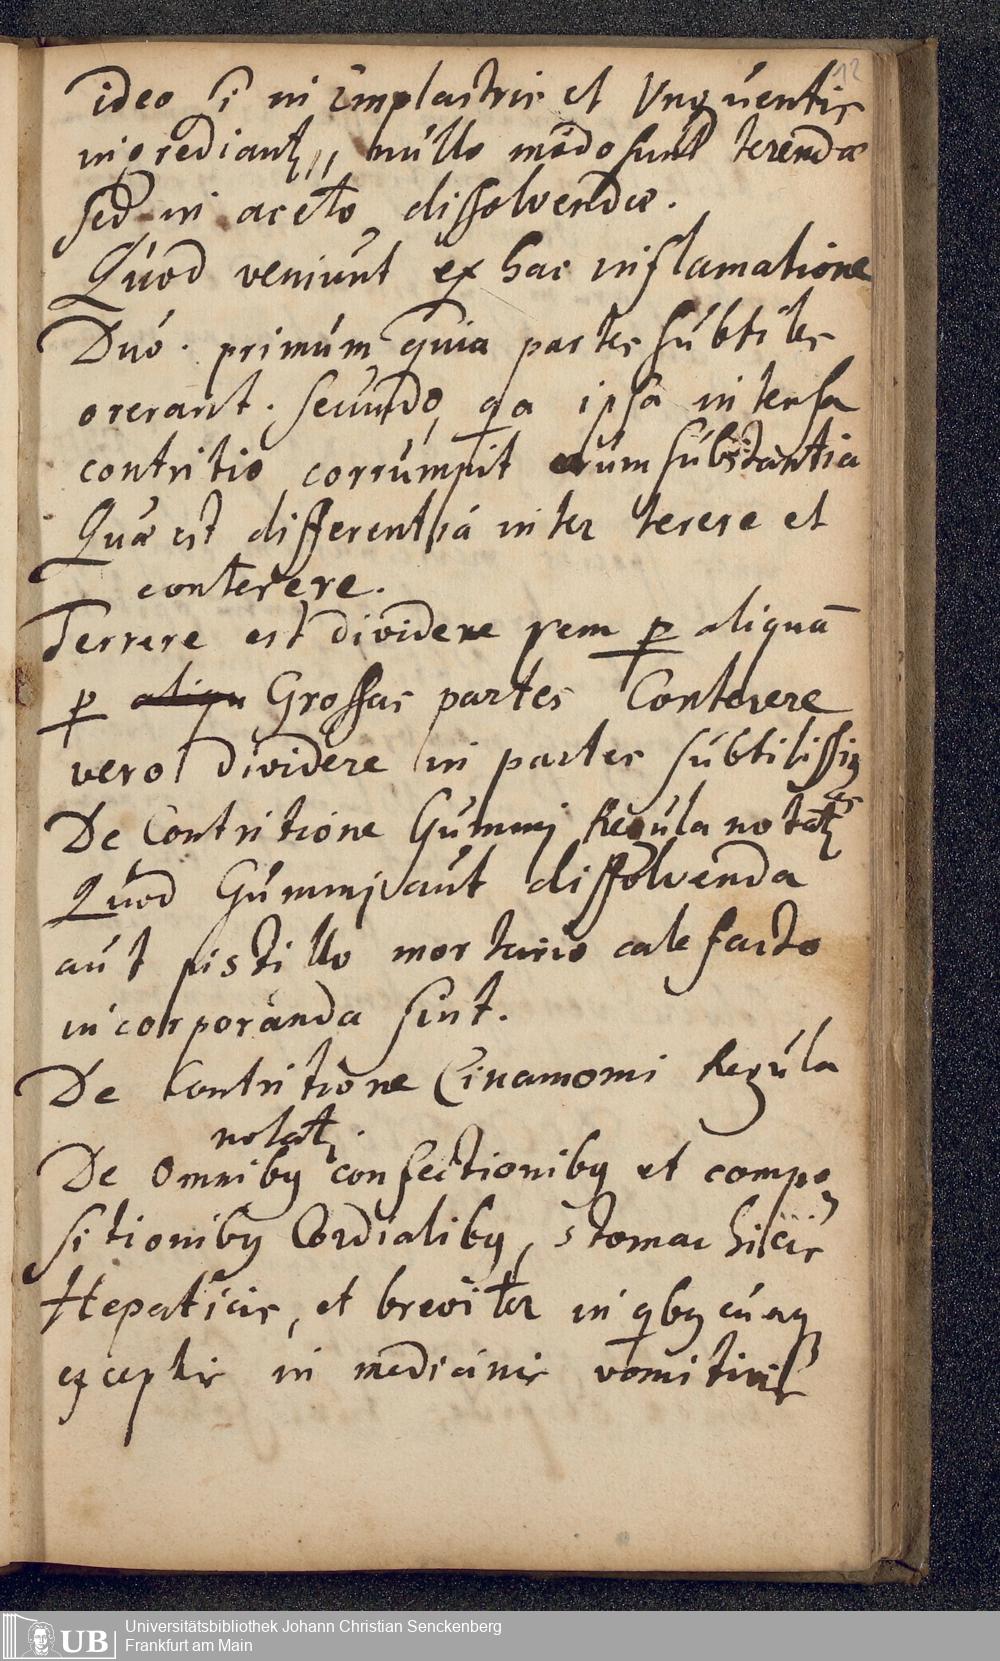 12
ideo si in Emplastris et Vnguentis
ingrediantʒ, nullo modo sunt terendæ
sed in aceto dissolvendæ.
Quod veniunt ex hac inflamatione
Duo. primum quia partes subtiles
secundo qa ipsa intensa
contritio corrumpit substantia
Quæ est differentia inter terere et
conterere.
Terrere est dividere rem p aliquā
p aliqu Grossas partes Conterere
vero dividere in partes subtilissi
as
De Contritione Gummj Regula notatʒ
Quod Gummj aut dissolvenda
aut pistillo mortario calefacto
incorporanda sint.
De Contritione Cinamomi Regula
notatʒ.
De Omnibꝯ confectionibꝯ et compo
sitionibꝯ Cordialibꝯ, stomachicis
Hepaticis, et breviter in qbꝯcunqꝫ
exceptis in medicinis vomitivis
Universitätsbibliothek Johann Christian Senckenberg
Frankfurt am Main
UB